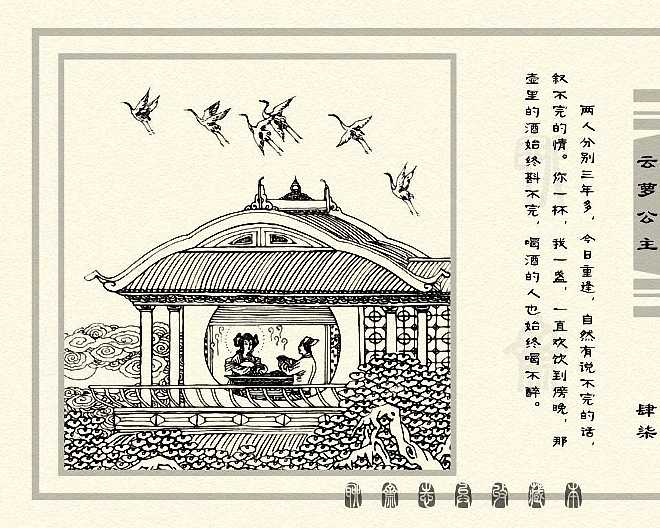 两人分别三年多，今日重逢，自然有说不完的话，
叙不完的情。你一杯，我一盏，一直欢饮到傍晚，那
壶里的酒始终斟不完，喝酒的人也始终喝不醉。
云萝公主
肆柒
聊斋志异收藏本